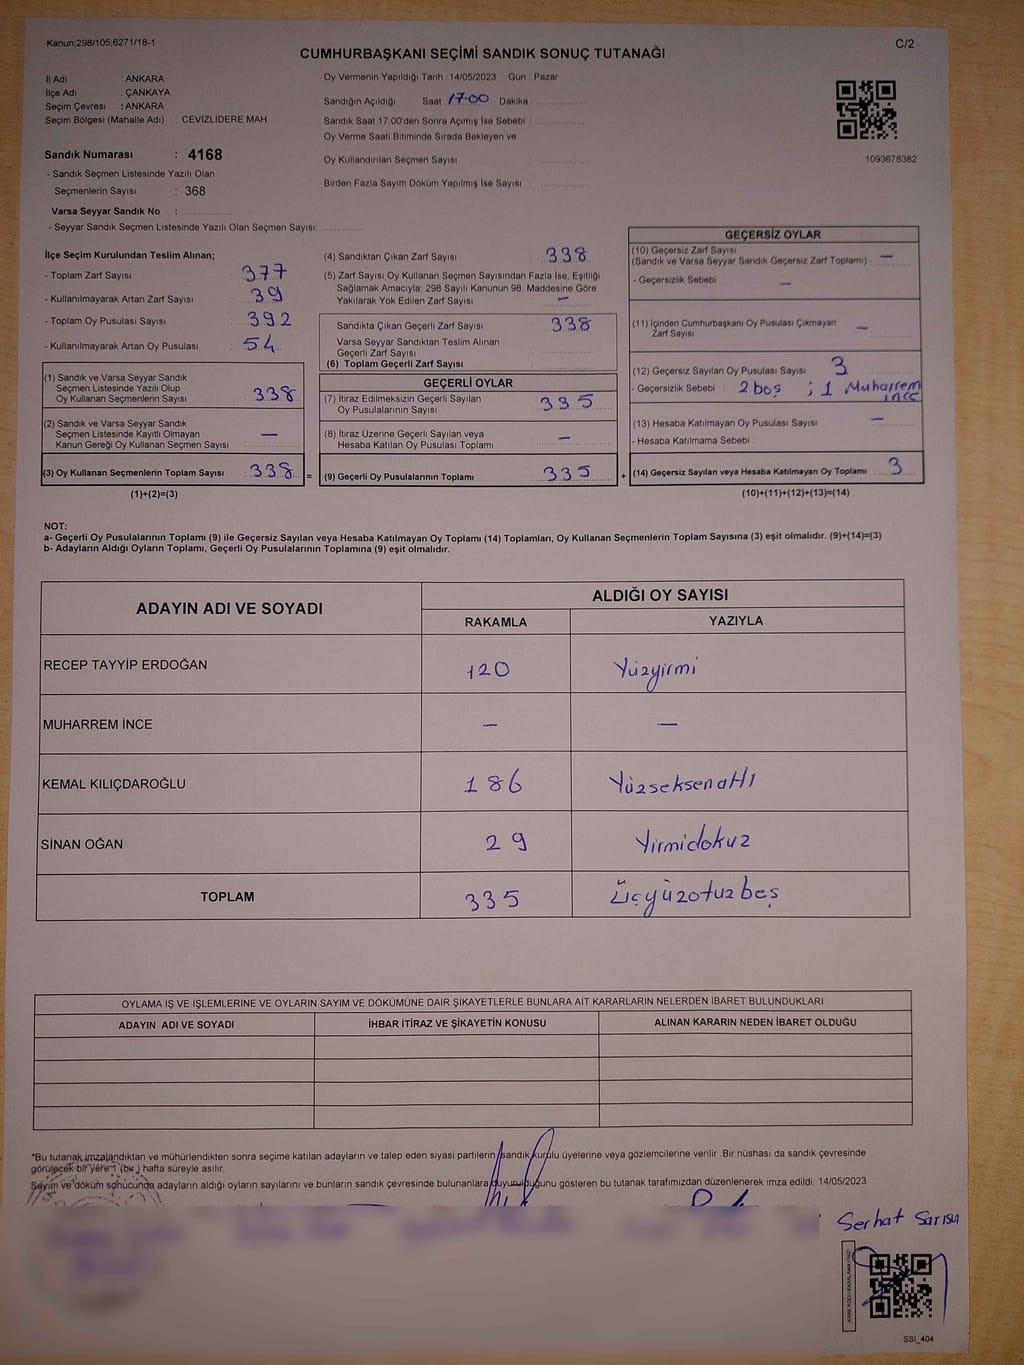 Kanun;298/105;6271/18-1
C/2
CUMHURBAŞKANI SEÇİMİ SANDIK SONUÇ TUTANAĞI
İl Adı : ANKARA
İlçe Adı : ÇANKAYA
Seçim Çevresi : ANKARA
Seçim Bölgesi (Mahalle Adı) : CEVİZLİDERE MAH.
Sandık Numarası : 4168
- Sandık Seçmen Listesinde Yazılı Olan
Seçmenlerin Sayısı : 368
Varsa Seyyar Sandık No :
- Seyyar Sandık Seçmen Listesinde Yazılı Olan Seçmen Sayısı:
Oy Vermenin Yapıldığı Tarih :14/05/2023 Gün : Pazar
Sandığın Açıldığı Saat 17:00 Dakika
Sandık Saat 17:00'den Sonra Açımış İse Sebebi :
Oy Verme Saati Bitiminde Sırada Bekleyen ve
Oy Kullandırılan Seçmen Sayısı :
Birden Fazla Sayım Döküm Yapılmış İse Sayısı :
1093678382
İlçe Seçim Kurulundan Teslim Alınan;
- Toplam Zarf Sayısı : 377
- Kullanılmayarak Artan Zarf Sayısı : 39
- Toplam Oy Pusulası Sayısı : 392
- Kullanılmayarak Artan Oy Pusulası : 54
(1) Sandık ve Varsa Seyyar Sandık
Seçmen Listesinde Yazılı Olup
Oy Kullanan Seçmenlerin Sayısı : 338
(2) Sandık ve Varsa Seyyar Sandık
Seçmen Listesinde Kayıtlı Olmayan
Kanun Gereği Oy Kullanan Seçmen Sayısı : —
(3) Oy Kullanan Seçmenlerin Toplam Sayısı : 338 =
(1)+(2)=(3)
(4) Sandıktan Çıkan Zarf Sayısı : 338
(5) Zarf Sayısı Oy Kullanan Seçmen Sayısından Fazla İse, Eşitliği
Sağlamak Amacıyla; 298 Sayılı Kanunun 98. Maddesine Göre
Yakılarak Yok Edilen Zarf Sayısı : —
Sandıkta Çıkan Geçerli Zarf Sayısı : 338
Varsa Seyyar Sandıktan Teslim Alınan
Geçerli Zarf Sayısı :
(6) Toplam Geçerli Zarf Sayısı :
GEÇERLİ OYLAR
(7) İtiraz Edilmeksizin Geçerli Sayılan
Oy Pusulalarının Sayısı : 335
(8) İtiraz Üzerine Geçerli Sayılan veya
Hesaba Katılan Oy Pusulası Toplamı : —
(9) Geçerli Oy Pusulalarının Toplamı : 335 +
GEÇERSİZ OYLAR
(10) Geçersiz Zarf Sayısı
(Sandık ve Varsa Seyyar Sandık Geçersiz Zarf Toplamı) : —
- Geçersizlik Sebebi : —
(11) İçinden Cumhurbaşkanı Oy Pusulası Çıkmayan
Zarf Sayısı : —
(12) Geçersiz Sayılan Oy Pusulası Sayısı : 3
- Geçersizlik Sebebi : 2 boş ; 1 Muharrem
ince
(13) Hesaba Katılmayan Oy Pusulası Sayısı : —
- Hesaba Katılmama Sebebi :
(14) Geçersiz Sayılan veya Hesaba Katılmayan Oy Toplamı : 3
(10)+(11)+(12)+(13)=(14)
NOT:
a- Geçerli Oy Pusulalarının Toplamı (9) ile Geçersiz Sayılan veya Hesaba Katılmayan Oy Toplamı (14) Toplamları, Oy Kullanan Seçmenlerin Toplam Sayısına (3) eşit olmalıdır. (9)+(14)=(3)
b- Adayların Aldığı Oyların Toplamı, Geçerli Oy Pusulalarının Toplamına (9) eşit olmalıdır.
ADAYIN ADI VE SOYADI
ALDIĞI OY SAYISI
RAKAMLA YAZIYLA
RECEP TAYYİP ERDOĞAN 120 Yüzyirmi
MUHARREM İNCE — —
KEMAL KILIÇDAROĞLU 186 Yüzseksenaltı
SİNAN OĞAN 29 Yirmidokuz
TOPLAM 335 Üçyüzotuzbeş
OYLAMA İŞ VE İŞLEMLERİNE VE OYLARIN SAYIM VE DÖKÜMÜNE DAİR ŞİKAYETLERLE BUNLARA AİT KARARLARIN NELERDEN İBARET BULUNDUKLARI
ADAYIN ADI VE SOYADI İHBAR İTİRAZ VE ŞİKAYETİN KONUSU ALINAN KARARIN NEDEN İBARET OLDUĞU
*Bu tutanak imzalandıktan ve mühürlendikten sonra seçime katılan adayların ve talep eden siyasi partilerin sandık kurulu üyelerine veya gözlemcilerine verilir. Bir nüshası da sandık çevresinde
görülecek bir yere 1 (bir) hafta süreyle asılır.
Sayım ve döküm sonucunda adayların aldığı oyların sayılarını ve bunların sandık çevresinde bulunanlara duyurulduğunu gösteren bu tutanak tarafımızdan düzenlenerek imza edildi. 14/05/2023
Serhat Sarısu
KARE KODU KARALAMAYINIZ!
SSI_404